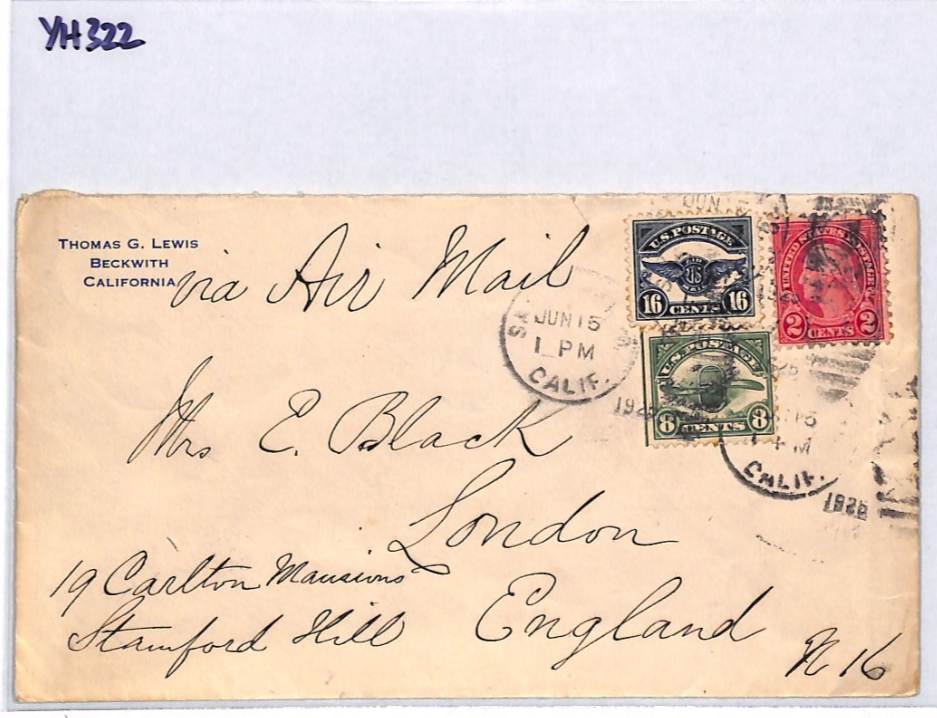 YH322
THOMAS G. LEWIS
BECKWITH
CALIFORNIA
via Air Mail
JUN 15
1 PM
CALIF.
U.S. POSTAGE
16 CENTS 16
UNITED STATES POSTAGE
2 CENTS 2
U.S. POSTAGE
8 CENTS 8
CALIF.
1926
Mrs E. Black
London
19 Carlton Mansions
Stamford Hill
England
N 16